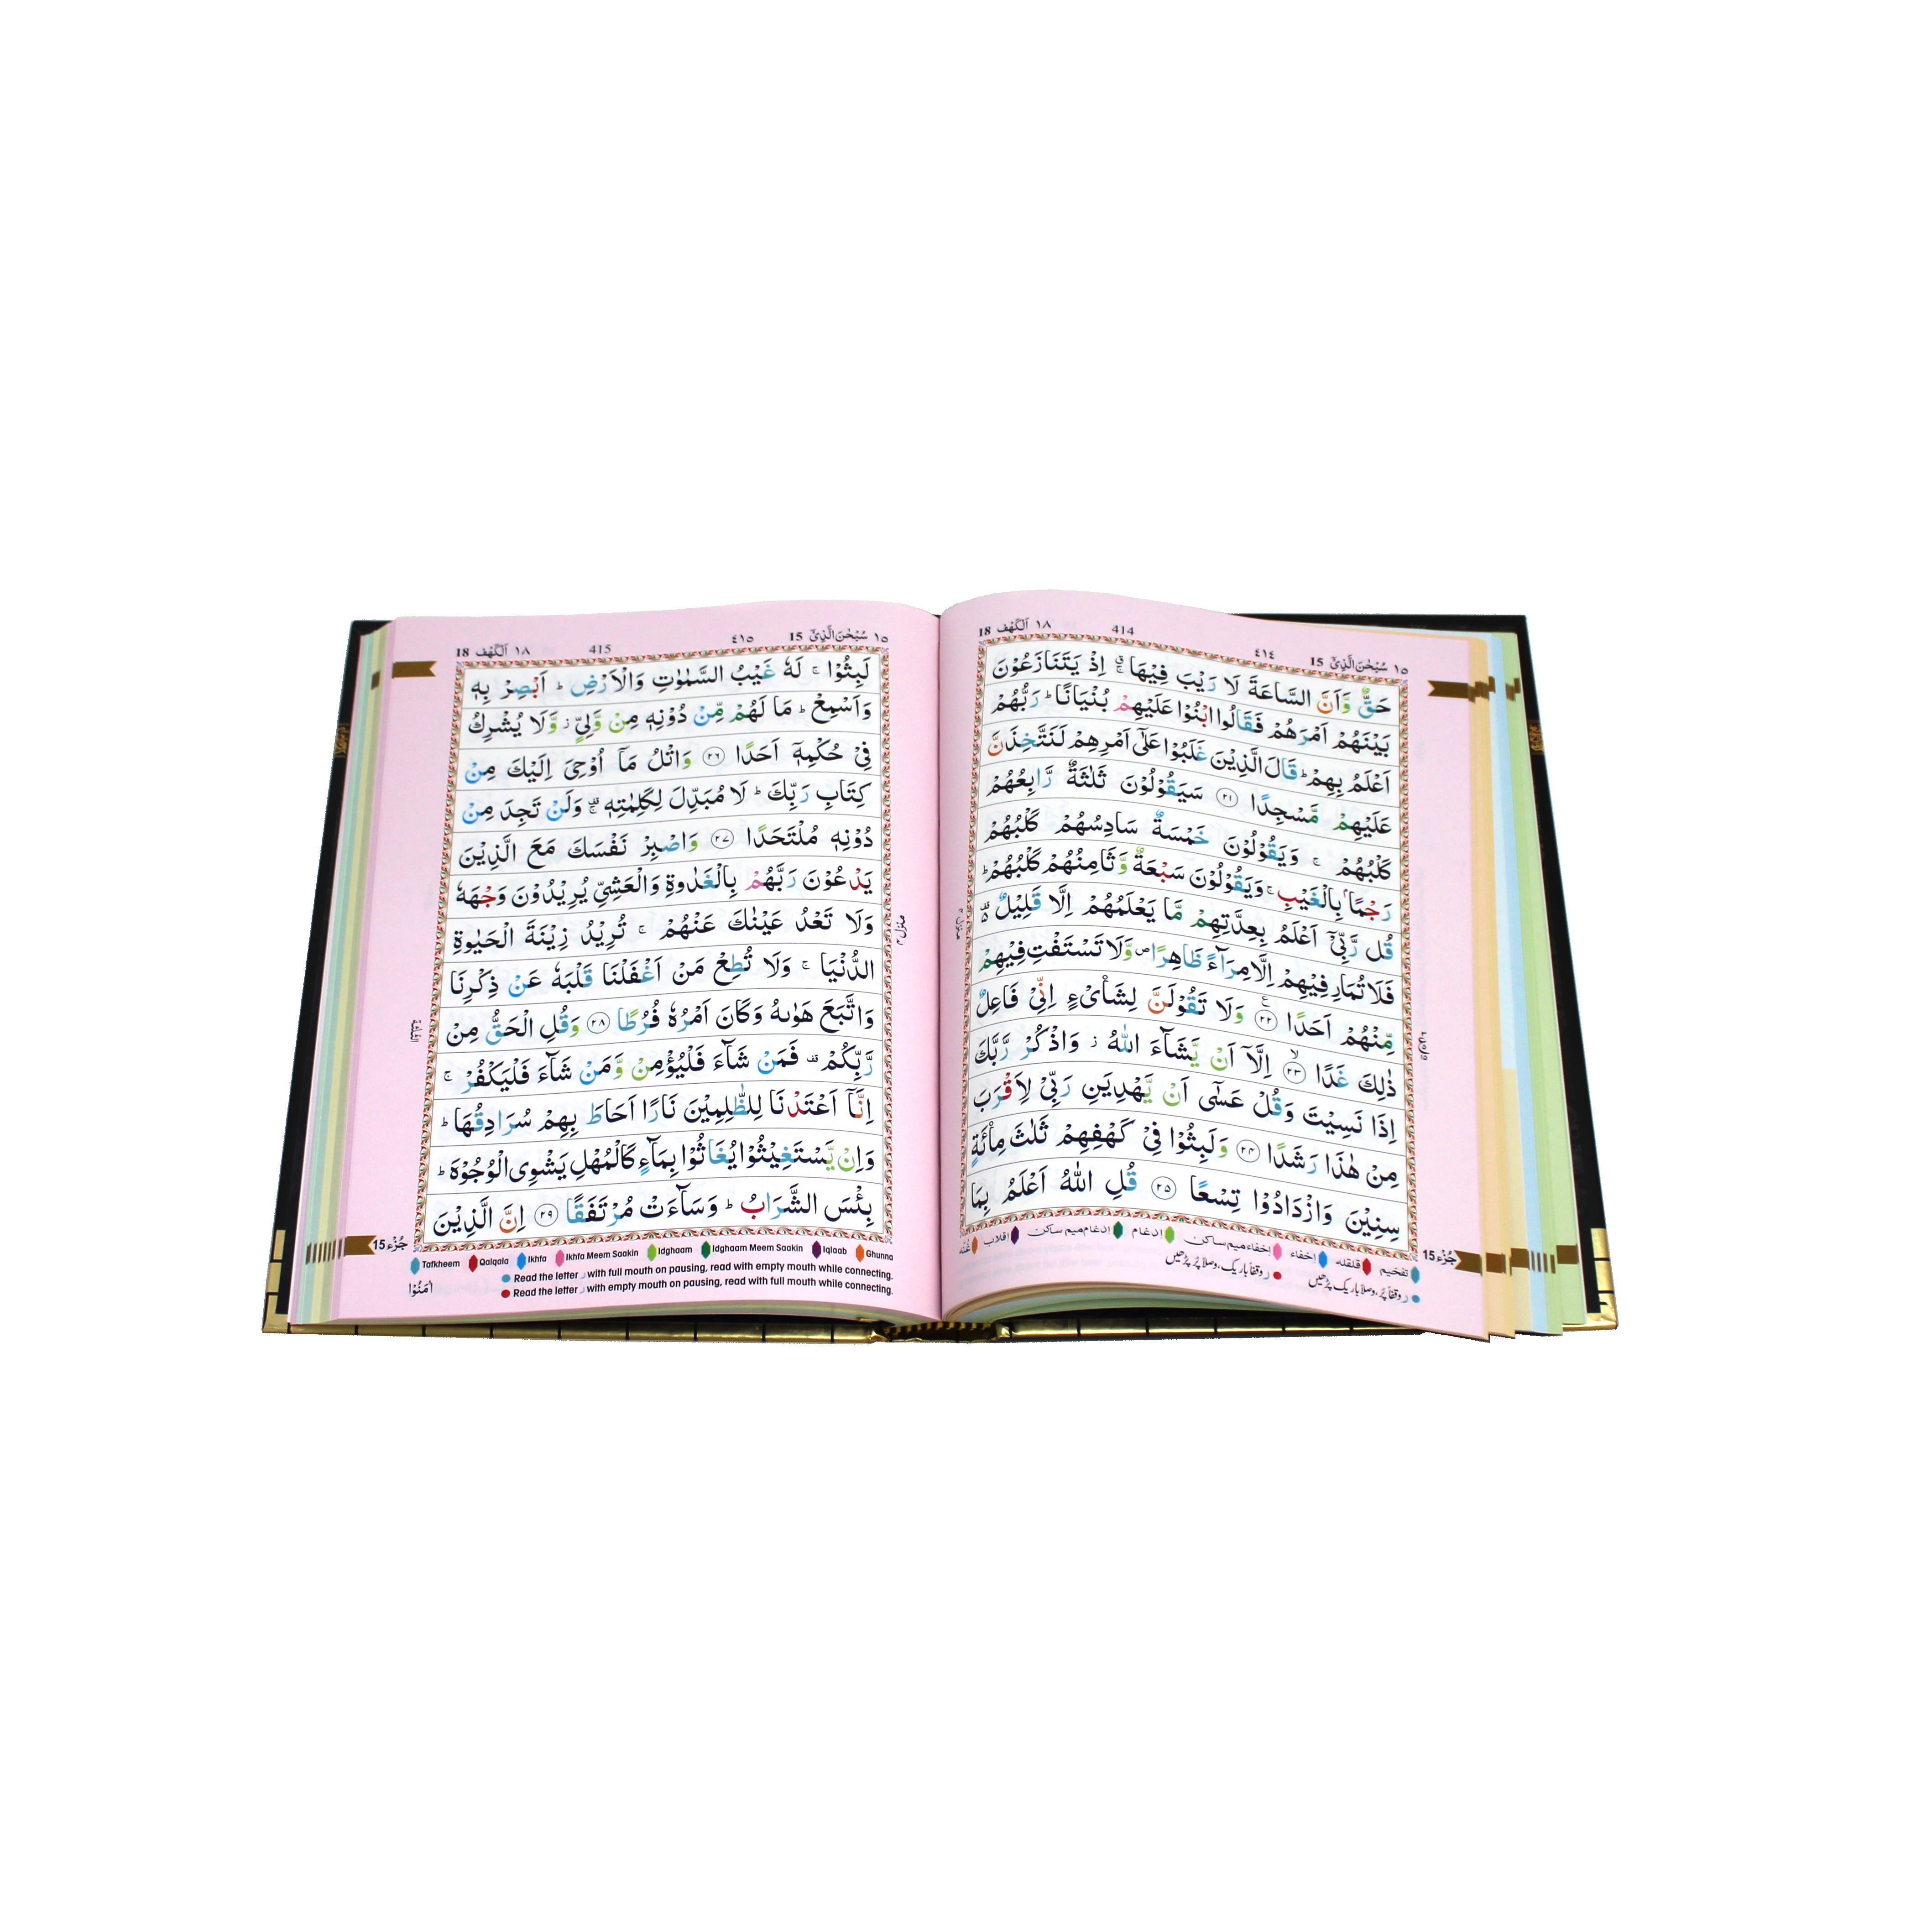 ١٥ سُبْحٰنَ الَّذِیْۤ 15
٤١٤
414
١٨ اَلْكَهْف 18
حَقٌّ وَّاَنَّ السَّاعَةَ لَا رَیْبَ فِیْهَا ۚ اِذْ یَتَنَازَعُوْنَ
بَیْنَهُمْ اَمْرَهُمْ فَقَالُوا ابْنُوْا عَلَیْهِمْ بُنْیَانًا ؕ رَبُّهُمْ
اَعْلَمُ بِهِمْ ؕ قَالَ الَّذِیْنَ غَلَبُوْا عَلٰۤی اَمْرِهِمْ لَنَتَّخِذَنَّ
عَلَیْهِمْ مَّسْجِدًا ﴿۲۱﴾ سَیَقُوْلُوْنَ ثَلٰثَةٌ رَّابِعُهُمْ
كَلْبُهُمْ ۚ وَیَقُوْلُوْنَ خَمْسَةٌ سَادِسُهُمْ كَلْبُهُمْ
رَجْمًۢا بِالْغَیْبِ ۚ وَیَقُوْلُوْنَ سَبْعَةٌ وَّثَامِنُهُمْ كَلْبُهُمْ ؕ
قُل رَّبِّیْۤ اَعْلَمُ بِعِدَّتِهِمْ مَّا یَعْلَمُهُمْ اِلَّا قَلِیْلٌ ۬
فَلَا تُمَارِ فِیْهِمْ اِلَّا مِرَآءً ظَاهِرًا ۪ وَّلَا تَسْتَفْتِ فِیْهِمْ
مِّنْهُمْ اَحَدًا ﴿۲۲﴾ وَلَا تَقُوْلَنَّ لِشَایْءٍ اِنِّیْ فَاعِلٌ
ذٰلِكَ غَدًا ﴿۲۳﴾ اِلَّاۤ اَنْ یَّشَآءَ اللّٰهُ ؗ وَاذْكُرْ رَّبَّكَ
اِذَا نَسِیْتَ وَقُلْ عَسٰۤی اَنْ یَّهْدِیَنِ رَبِّیْ لِاَقْرَبَ
مِنْ هٰذَا رَشَدًا ﴿۲۴﴾ وَلَبِثُوْا فِیْ كَهْفِهِمْ ثَلٰثَ مِائَةٍ
سِنِیْنَ وَازْدَادُوْا تِسْعًا ﴿۲۵﴾ قُلِ اللّٰهُ اَعْلَمُ بِمَا
منزل ۴
جُزْء 15
تفخیم قلقله إخفاء إخفاء میم ساکن إدغام إدغام میم ساکن اقلاب غُنّه
ر وقفاً پُر، وصلا باریک پڑھیں
ر وقفا باریک، وصلا پُر پڑھیں
١٥ سُبْحٰنَ الَّذِیْۤ 15
٤١٥
415
١٨ اَلْكَهْف 18
لَبِثُوْا ۚ لَهٗ غَیْبُ السَّمٰوٰتِ وَالْاَرْضِ ؕ اَبْصِرْ بِهٖ
وَاَسْمِعْ ؕ مَا لَهُمْ مِّنْ دُوْنِهٖ مِنْ وَّلِیٍّ ؗ وَّلَا یُشْرِكُ
فِیْ حُكْمِهٖۤ اَحَدًا ﴿۲۶﴾ وَاتْلُ مَاۤ اُوْحِیَ اِلَیْكَ مِنْ
كِتَابِ رَبِّكَ ؕ لَا مُبَدِّلَ لِكَلِمٰتِهٖ ۚ۫ وَلَنْ تَجِدَ مِنْ
دُوْنِهٖ مُلْتَحَدًا ﴿۲۷﴾ وَاصْبِرْ نَفْسَكَ مَعَ الَّذِیْنَ
یَدْعُوْنَ رَبَّهُمْ بِالْغَدٰوةِ وَالْعَشِیِّ یُرِیْدُوْنَ وَجْهَهٗ
وَلَا تَعْدُ عَیْنٰكَ عَنْهُمْ ۚ تُرِیْدُ زِیْنَةَ الْحَیٰوةِ
الدُّنْیَا ۚ وَلَا تُطِعْ مَنْ اَغْفَلْنَا قَلْبَهٗ عَنْ ذِكْرِنَا
وَاتَّبَعَ هَوٰىهُ وَكَانَ اَمْرُهٗ فُرُطًا ﴿۲۸﴾ وَقُلِ الْحَقُّ مِنْ
رَّبِّكُمْ ۫ فَمَنْ شَآءَ فَلْیُؤْمِنْ وَّمَنْ شَآءَ فَلْیَكْفُرْ ۚ
اِنَّاۤ اَعْتَدْنَا لِلظّٰلِمِیْنَ نَارًا اَحَاطَ بِهِمْ سُرَادِقُهَا ؕ
وَاِنْ یَّسْتَغِیْثُوْا یُغَاثُوْا بِمَآءٍ كَالْمُهْلِ یَشْوِی الْوُجُوْهَ ؕ
بِئْسَ الشَّرَابُ ؕ وَسَآءَتْ مُرْتَفَقًا ﴿۲۹﴾ اِنَّ الَّذِیْنَ
منزل ۴
جُزْء 15
Tafkheem Qalqala Ikhfa Ikhfa Meem Saakin Idghaam Idghaam Meem Saakin Iqlaab Ghunna
Read the letter ر with full mouth on pausing, read with empty mouth while connecting.
Read the letter ر with empty mouth on pausing, read with full mouth while connecting.
اٰمَنُوْا